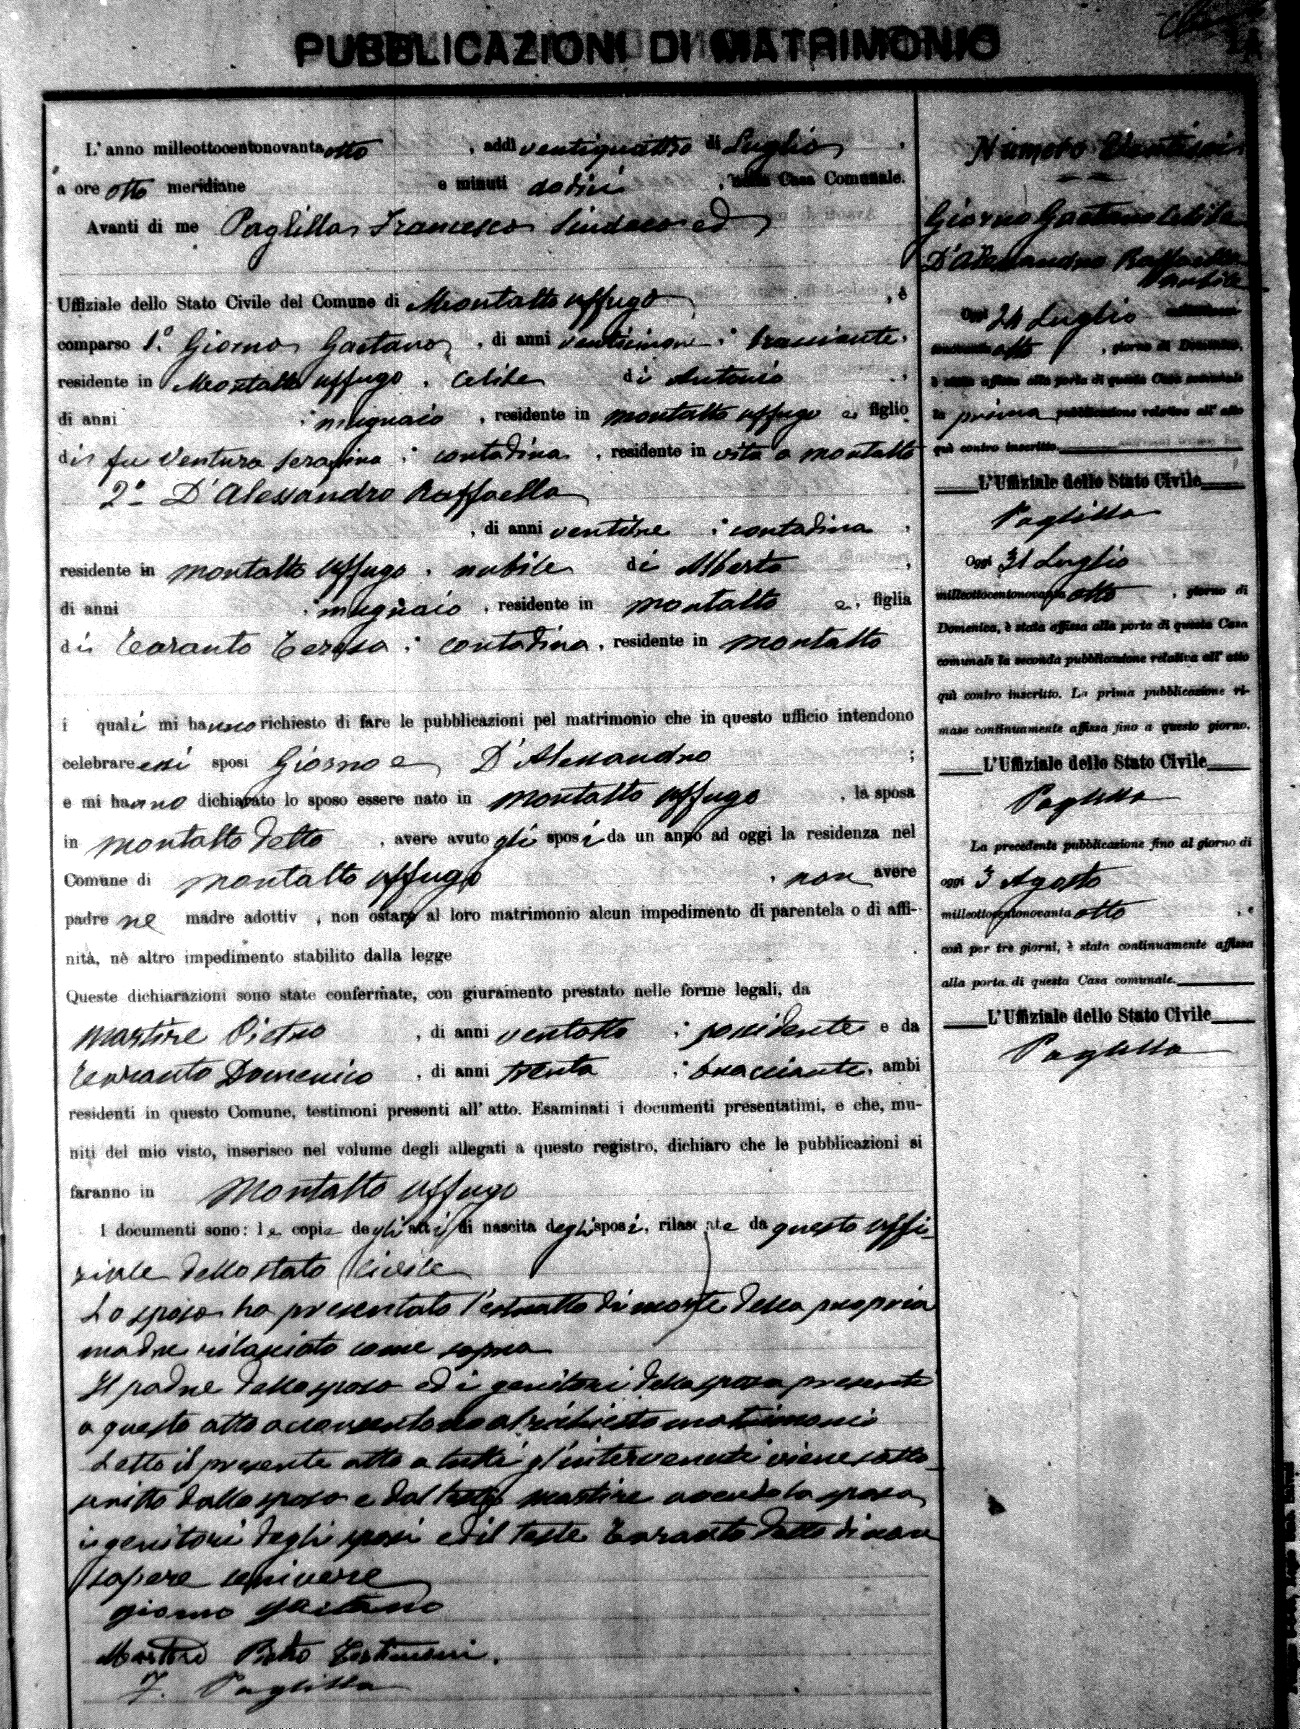 PUBBLICAZIONI DI MATRIMONIO
L'anno milleottocentonovantaotto, addì ventiquattro di Luglio,
a ore otto meridiane e minuti dodici, nella Casa Comunale.
Avanti di me Paglilla Francesco Sindaco ed
Uffiziale dello Stato Civile del Comune di Montalto Uffugo, è
comparso 1.° Giorno Gaetano, di anni ; bracciante,
residente in Montalto Uffugo, celibe di Antonio,
di anni ; mugnaio, residente in Montalto Uffugo e, figlio
di fu Ventura Serafina ; contadina, residente in vita a Montalto
2° D'Alessandro Raffaella
, di anni ventitre ; contadina,
residente in Montalto Uffugo, nubile di Alberto,
di anni ; mugnaio, residente in Montalto e, figlia
di Teresa ; contadina, residente in Montalto
i quali mi hanno richiesto di fare le pubblicazioni pel matrimonio che in questo ufficio intendono
celebrare essi sposi Giorno e D'Alessandro ;
e mi hanno dichiarato lo sposo essere nato in Montalto Uffugo, la sposa
in Montalto detto, avere avuto gli sposi da un anno ad oggi la residenza nel
Comune di Montalto Uffugo, non avere
padre nè madre adottiv , non ostare al loro matrimonio alcun impedimento di parentela o di affi-
nità, nè altro impedimento stabilito dalla legge.
Queste dichiarazioni sono state confermate, con giuramento prestato nelle forme legali, da
Martire Pietro, di anni ventotto ; possidente e da
Domenico, di anni trenta ; bracciante, ambi
residenti in questo Comune, testimoni presenti all'atto. Esaminati i documenti presentatimi, e che, mu-
niti del mio visto, inserisco nel volume degli allegati a questo registro, dichiaro che le pubblicazioni si
faranno in Montalto Uffugo
I documenti sono: le copie degli atti di nascita degli sposi, rilasciate da questo uffi-
ziale dello stato civile
Lo sposo ha presentato l'estratto di morte della propria
madre rilasciato come sopra
Il padre dello sposo ed i genitori della sposa presenti
a questo atto acconsentono al richiesto matrimonio
Letto il presente atto a tutti gl'intervenuti viene sotto
scritto dallo sposo e dal teste Martire avendo la sposa
i genitori degli sposi ed il teste detto di non
sapere scrivere
giorno gaetano
Martire Pietro Testimoni.
F. Paglilla
Numero
Giorno Gaetano celibe
D'Alessandro Raffaella
nubile
Oggi 24 Luglio milleotto-
centonovantaotto, giorno di Domenica,
è stata affissa alla porta di questa Casa comunale
la prima pubblicazione relativa all'atto
quì contro inscritto.
L'Uffiziale dello Stato Civile
Paglilla
Oggi 31 Luglio
milleottocentonovantaotto, giorno di
Domenica, è stata affissa alla porta di questa Casa
comunale la seconda pubblicazione relativa all'atto
quì contro inscritto. La prima pubblicazione ri-
mase continuamente affissa fino a questo giorno.
L'Uffiziale dello Stato Civile
Paglilla
La precedente pubblicazione fino al giorno di
oggi 3 Agosto
milleottocentonovantaotto, e
così per tre giorni, è stata continuamente affissa
alla porta di questa Casa comunale.
L'Uffiziale dello Stato Civile
Paglilla